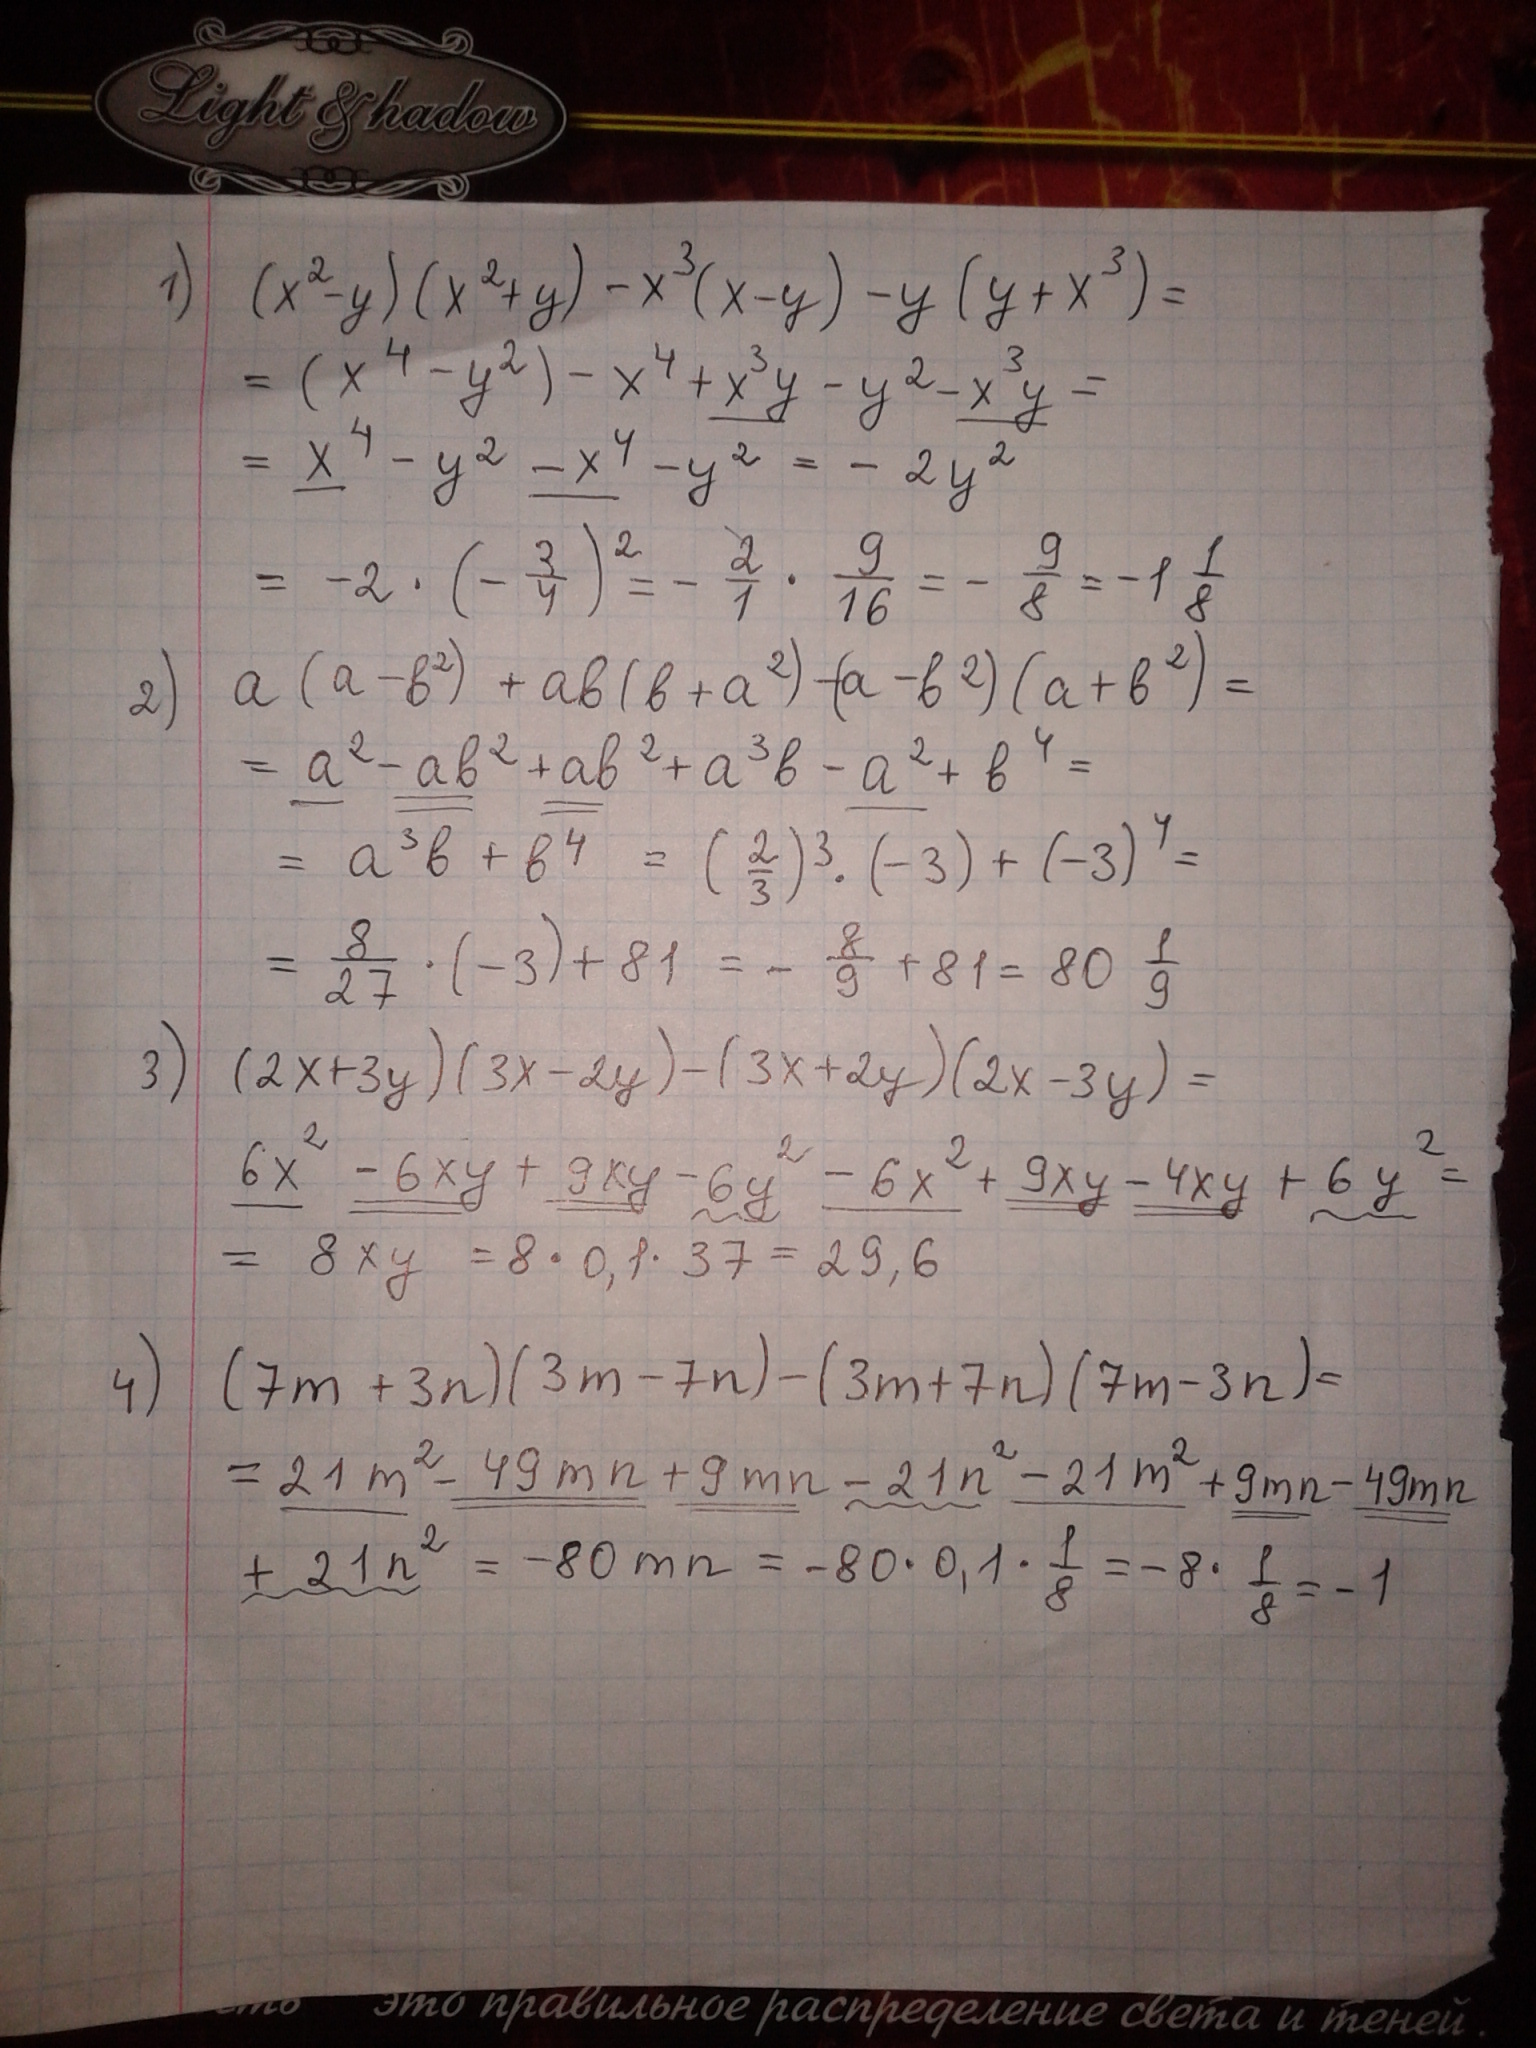 Light & Shadow
1) (x²-y)(x²+y) - x³(x-y) - y(y+x³) =
= (x⁴ - y²) - x⁴ + x³y - y² - x³y =
= x⁴ - y² - x⁴ - y² = - 2y²
= -2 · (- 3/4)² = - 2/1 · 9/16 = - 9/8 = -1 1/8
2) a(a-b²) + ab(b+a²) - (a-b²)(a+b²) =
= a² - ab² + ab² + a³b - a² + b⁴ =
= a³b + b⁴ = (2/3)³ · (-3) + (-3)⁴ =
= 8/27 · (-3) + 81 = - 8/9 + 81 = 80 1/9
3) (2x+3y)(3x-2y) - (3x+2y)(2x-3y) =
6x² - 6xy + 9xy - 6y² - 6x² + 9xy - 4xy + 6y² =
= 8xy = 8 · 0,1 · 37 = 29,6
4) (7m + 3n)(3m - 7n) - (3m + 7n)(7m - 3n) =
= 21m² - 49mn + 9mn - 21n² - 21m² + 9mn - 49mn
+ 21n² = -80mn = -80 · 0,1 · 1/8 = -8 · 1/8 = -1
это правильное распределение света и теней.